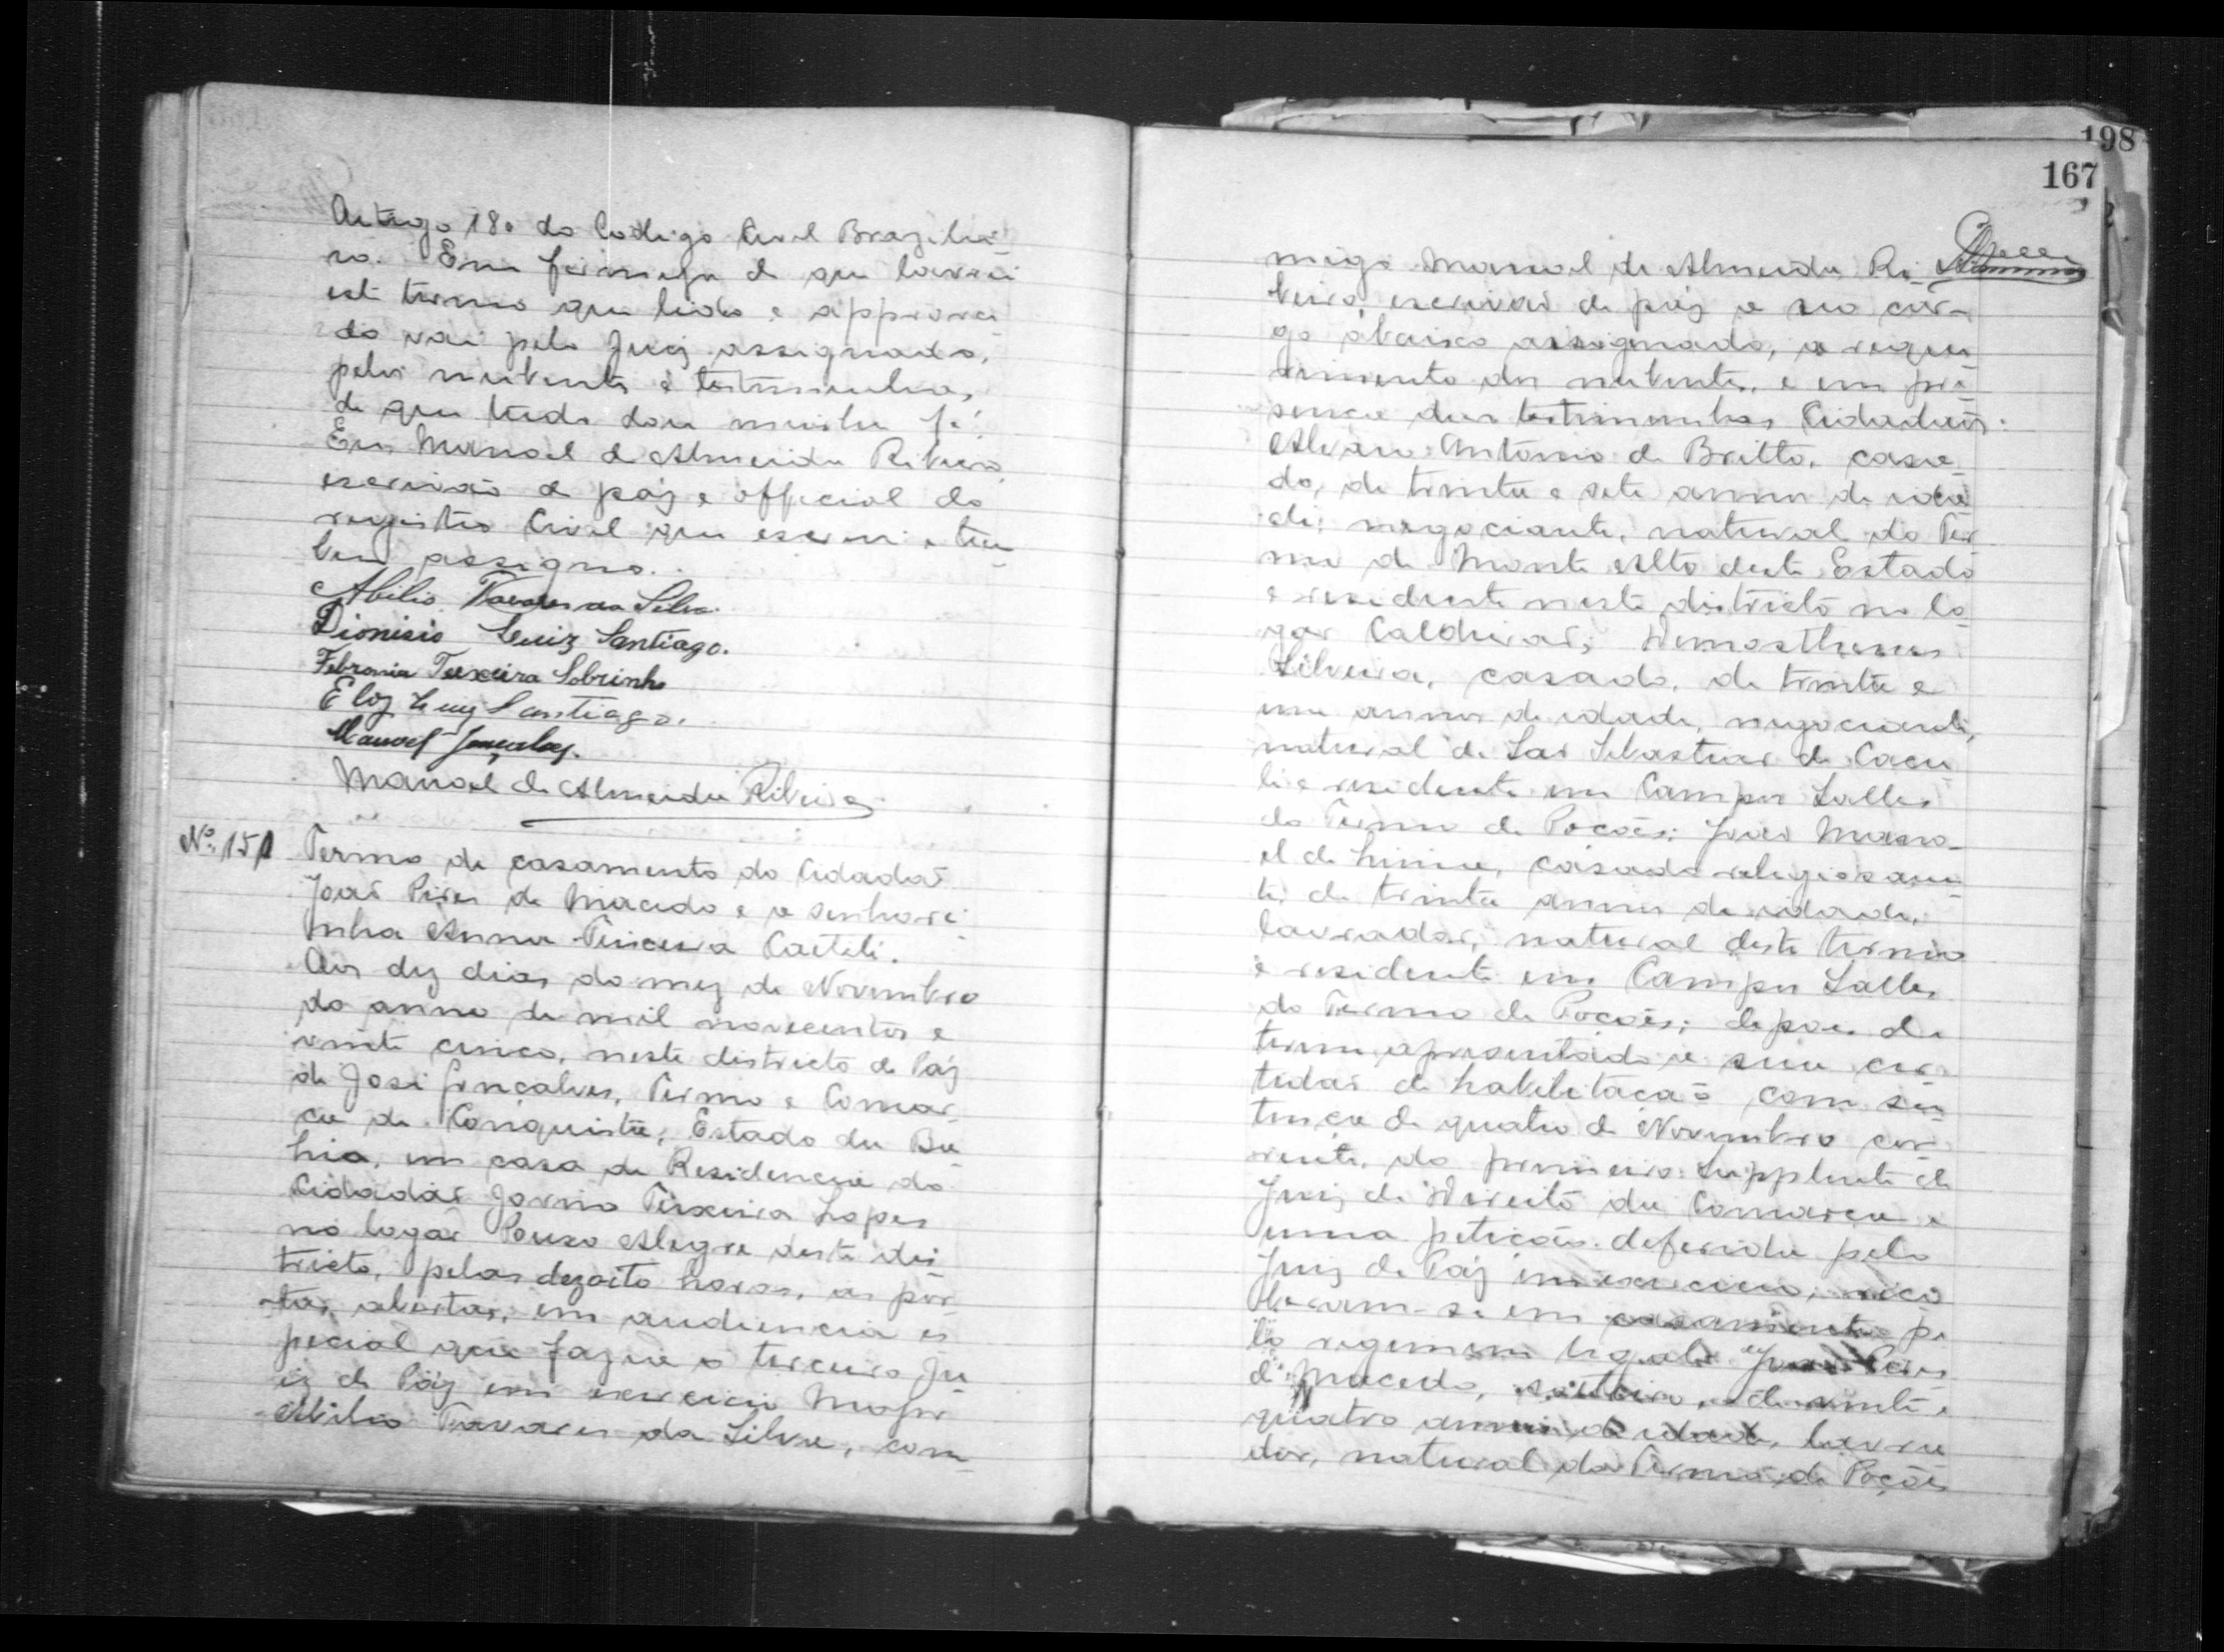 Artigo 180 do Codigo Civil Brazilei
ro. Em firmeza de que lavrei
este termo que lido e approva
do vai pelo Juiz assignado,
pelos nubentes e testimunhas,
de que tudo dou minha fé.
Eu, Manoel de Almeida Ribeiro,
escrivão de paz e official do
registro Civil que escrevi e tam
bem assigno.
Abilio Tavares da Silva.
Dionisio Luiz Santiago.
Febronia Teixeira Sobrinho
Eloy Luiz Santiago.
Manoel Gonçalves.
Manoel de Almeida Ribeiro
Nº 151
Termo de casamento do Cidadaõ
Joaõ Pires de Macedo e a senhori
nha Anna Teixeira
Aos dez dias do mez de Novembro
do anno de mil novecentos e
vinte cinco, neste districto de Páz
de José Gonçalves, Termo e Comar
ca de Conquista, Estado da Ba
hia, em casa de Residencia do
Cidadaõ Jovino Teixeira Lopes
no logar Pouso Alegre deste dis
tricto, pelas dezoito horas, as por
tas abertas, em audiencia es
pecial que fazia o terceiro Ju
iz de Páz em exercicio Major
Abilio Tavares da Silva, com
198
167
migo Manoel de Almeida Ri
beiro, escrivaõ de páz a seo car
go abaixo assignado, a reque
rimento dos nubentes, e em pre
sença das testimunhas Cidadaõs:
Alvaro Antonio de Britto, casa
do, de trinta e sete annos de ida
de, negociante, natural do Ter
mo de Monte Alto deste Estado
e residente neste districto no lo
gar Demosthenes
Silveira, casado, de trinta e
um annos de idade, negociante,
natural de Saõ Sebastiaõ de Cacu
lé e residente em Campos Salles
do Termo de Poções; Joaõ Mano
el de casado religiosamen
te, de trinta annos de idade,
lavrador, natural deste termo
e residente em Campos Salles
do Termo de Poções; depois de
terem apresentado a sua cer
tidaõ de habilitacaõ com sen
tença de quatro de Novembro cor
rente, do primeiro Supplente de
Juiz de Direito da Comarca e
uma peticaõ deferida pelo
Juiz de Páz em exercicio; rece
beram-se em casamento pe
lo regimem legal: Joaõ Pires
de Macedo, solteiro, de vinte e
quatro annos de idade, lavra
dor, natural do Termo de Poções